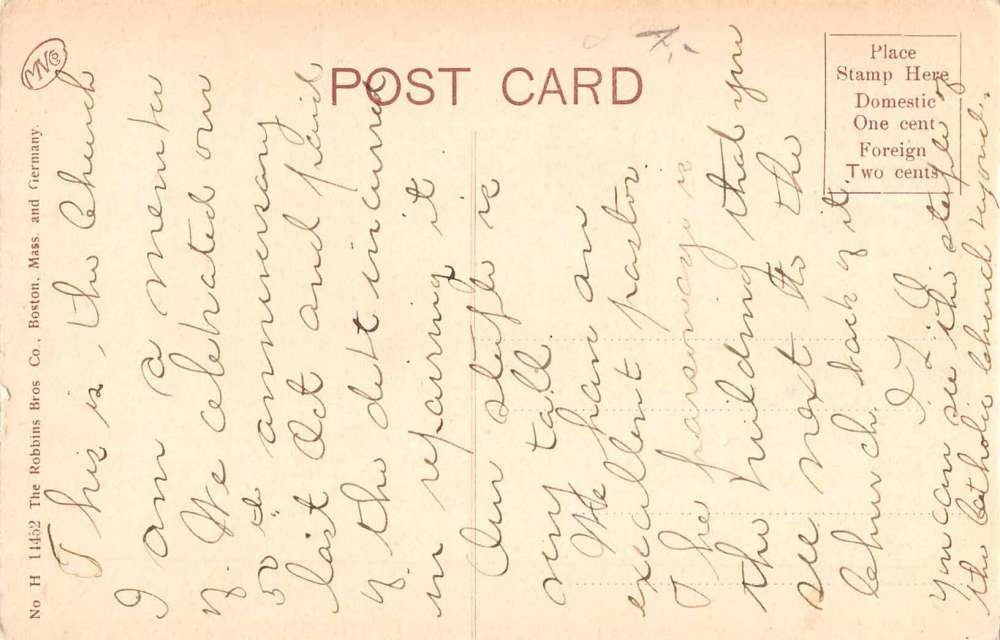 POST CARD
Place
Stamp Here
Domestic
One cent
Foreign
Two cents
No H 11452 The Robbins Bros Co., Boston, Mass. and Germany.
This is, the Church
I am a member
of. We celebrated our
50th anniversary
last Oct and paid
of the debt incurred
in repairing it
Our steeple is
very tall.
We have an
excellent pastor.
The parsonage is
the building that you
see next to the
Church. back of it.
You can see the steeple of
the Catholic church beyond.